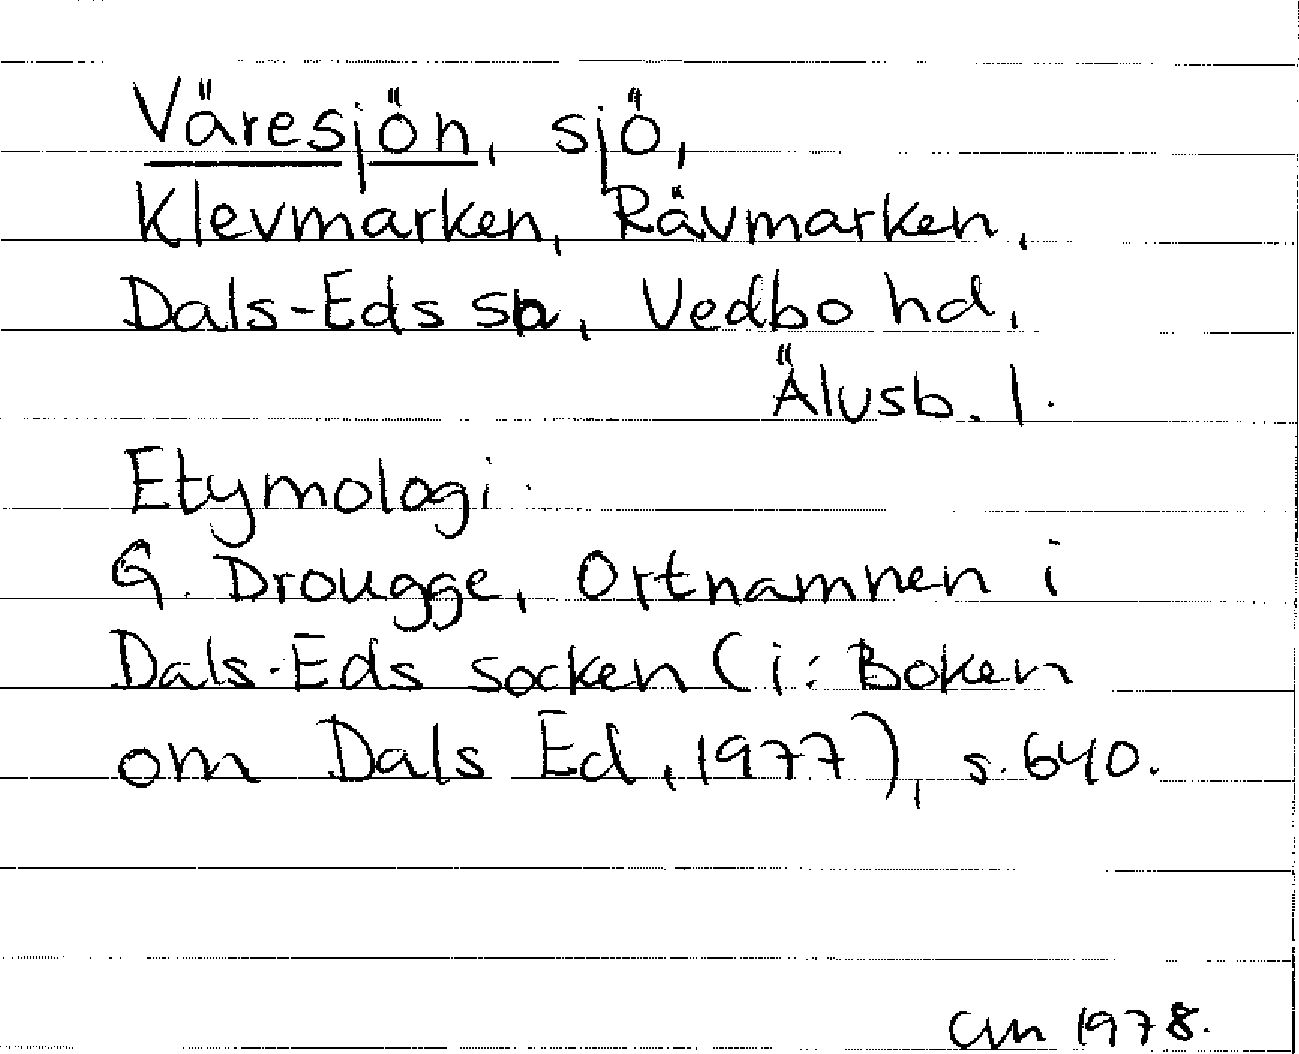 Väresjön, sjö,
Klevmarken, Rävmarken,
Dals-Eds sn, Vedbo hd,
Älvsb. l.
Etymologi:
G. Drougge, Ortnamnen i
Dals-Eds socken (i: Boken
om Dals Ed, 1977), s. 640.
CM 1978.